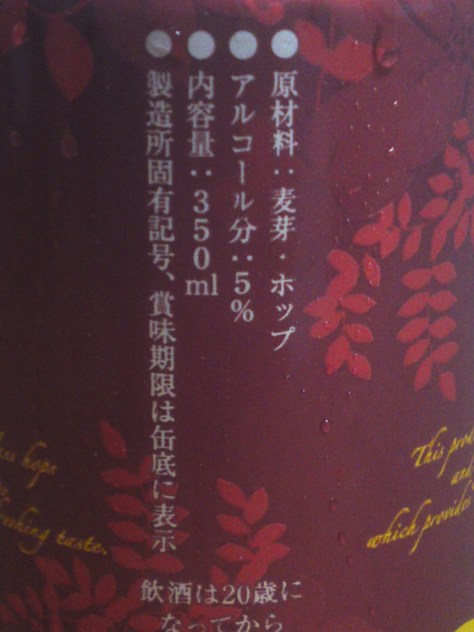 ●原材料：麦芽・ホップ
●アルコール分：5%
●内容量：350ml
●製造所固有記号、賞味期限は缶底に表示
飲酒は20歳に
なってから
hope
freshing taste.
This prod
and
which provides